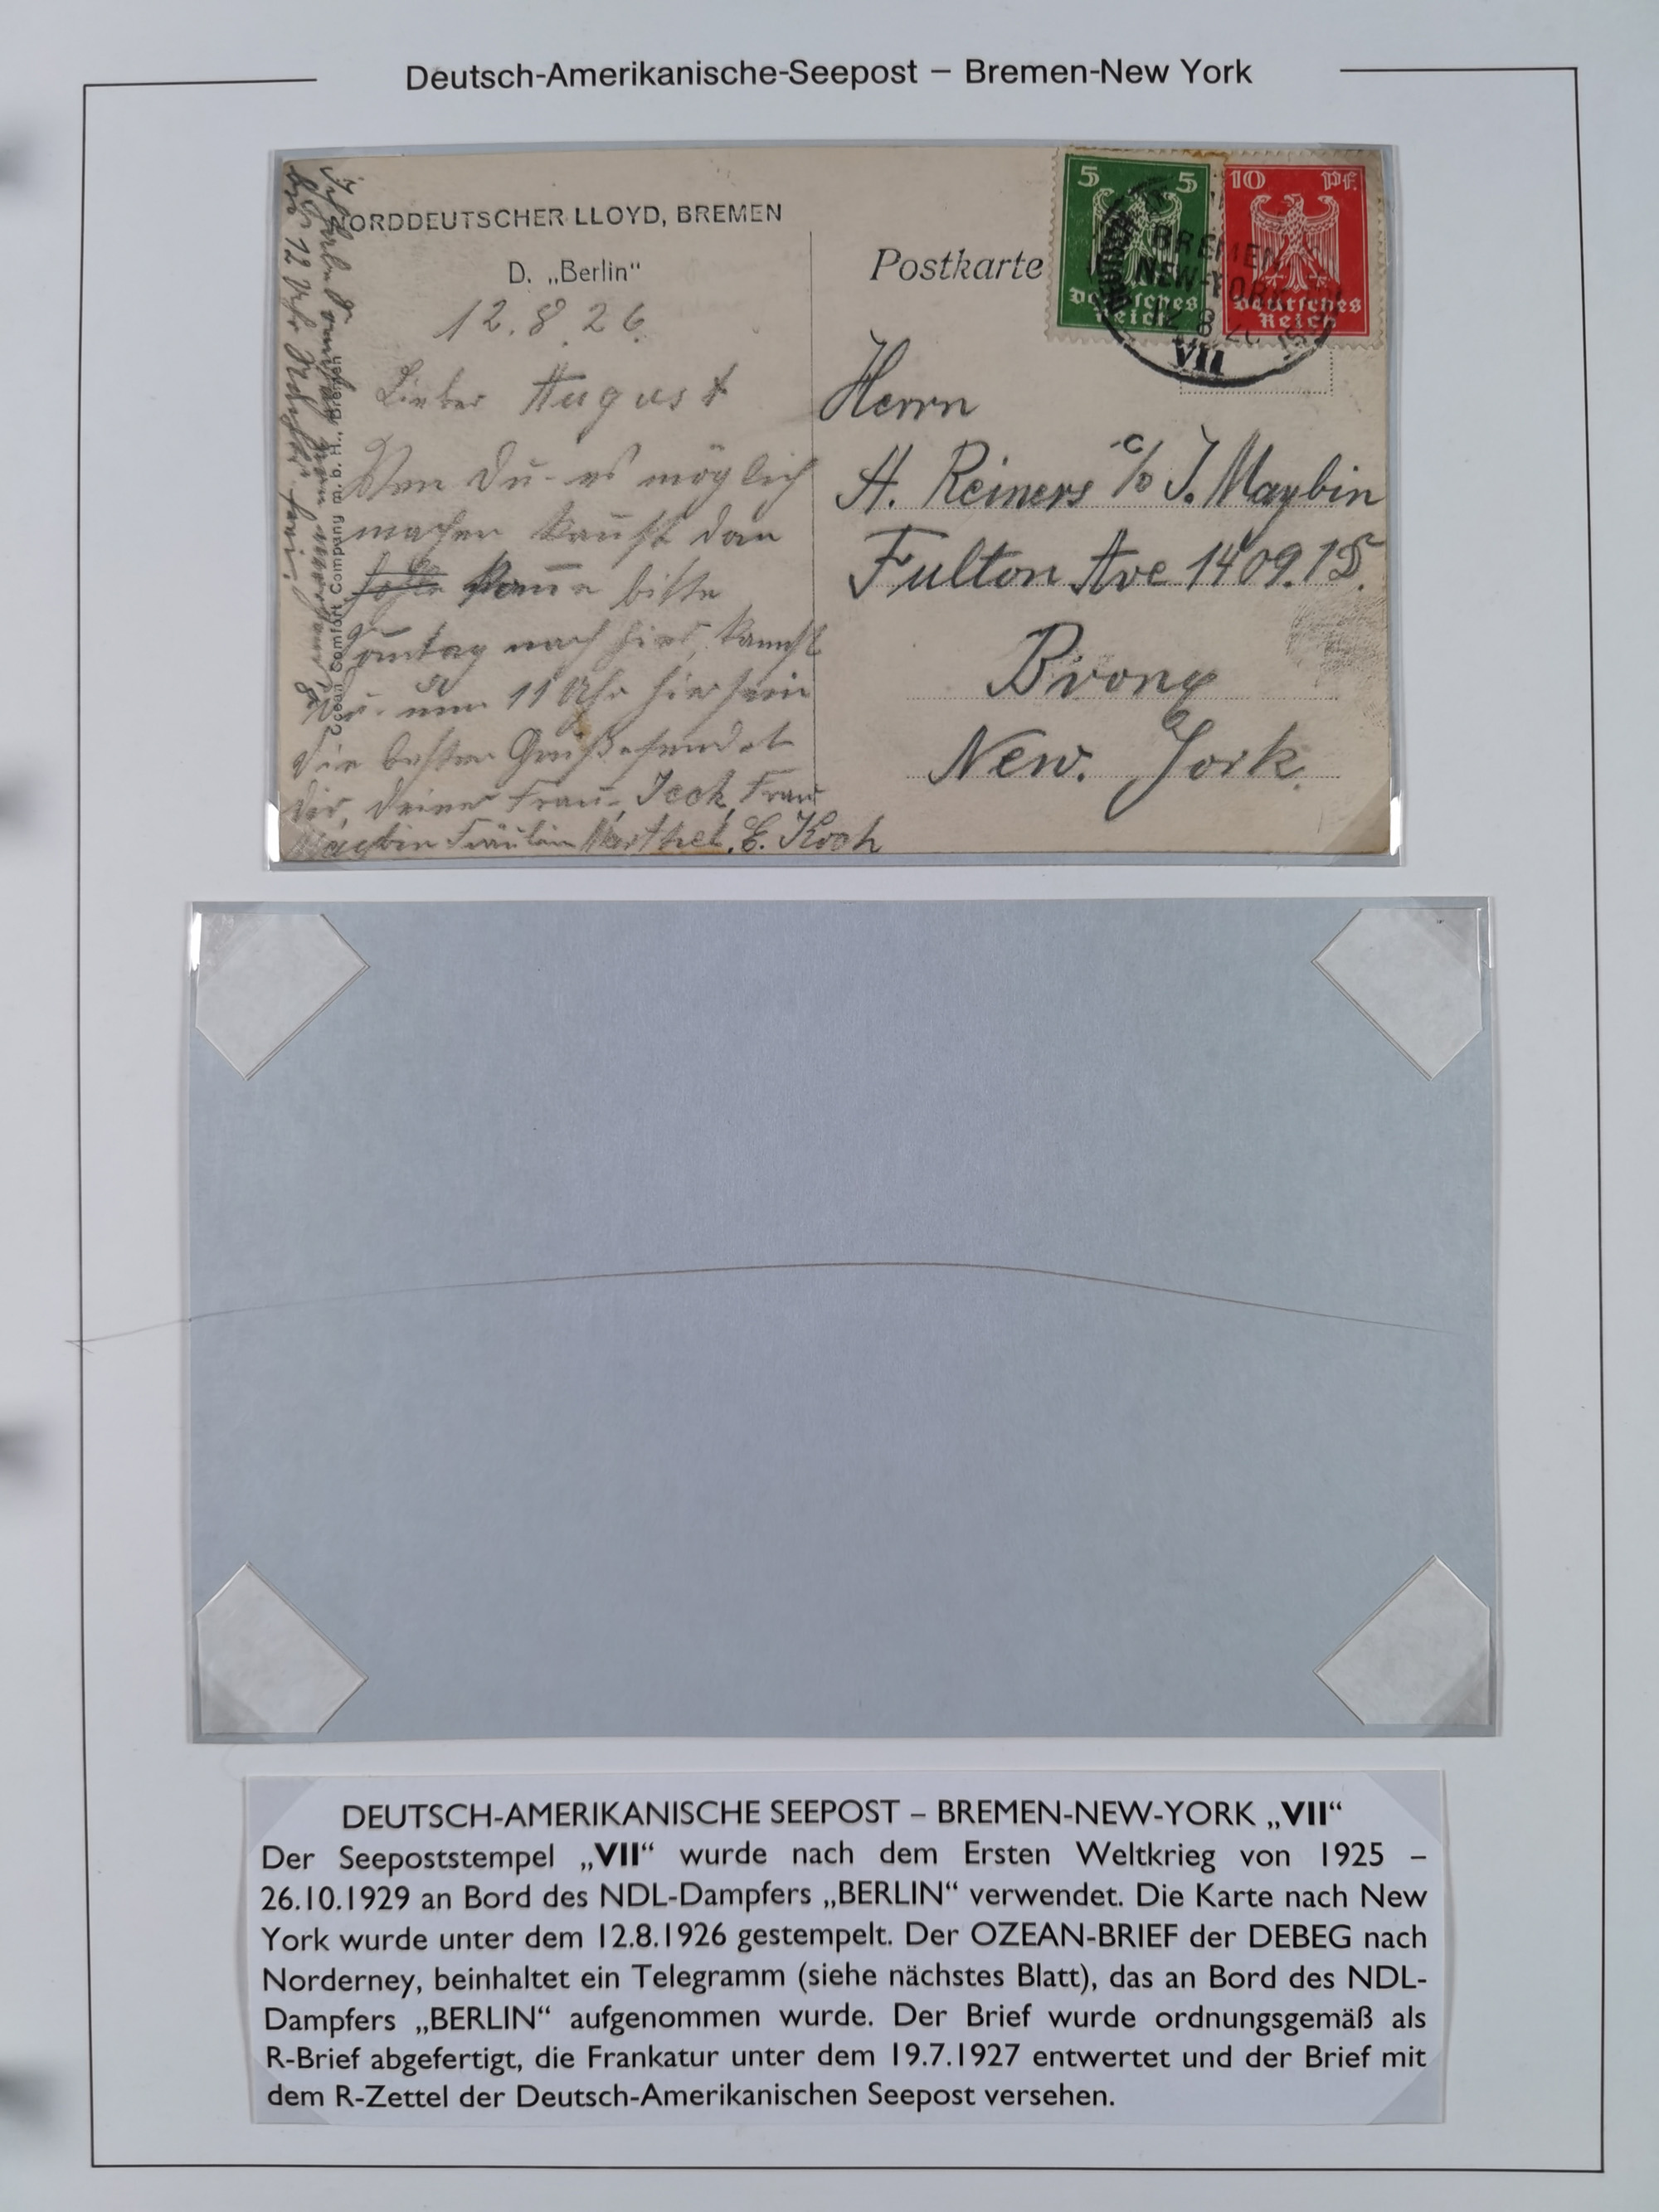 Deutsch-Amerikanische-Seepost – Bremen-New York
NORDDEUTSCHER LLOYD, BREMEN
D. „Berlin“
12.8.26.
Lieber August
Wen Du es möglich
machen kanst dan
kome bitte
Sontag nach hier, kannst
Du um 11 Uhr hier sein
die besten Grüße sendet
Dir, deiner Frau, Frau
Maybin Fräulein E. Koch
12 Uhr
Ocean Comfort Company m. b. H., Bremen
Postkarte
5 5
Deutsches
Reich
10 Pf.
Deutsches
Reich
BREMEN
NEW-YORK
12 8 26
VII
Herrn
H. Reiners c/o J. Maybin
Fulton Ave 1409. 15.
Bronx
New. York.
DEUTSCH-AMERIKANISCHE SEEPOST – BREMEN-NEW-YORK „VII“
Der Seepoststempel „VII“ wurde nach dem Ersten Weltkrieg von 1925 –
26.10.1929 an Bord des NDL-Dampfers „BERLIN“ verwendet. Die Karte nach New
York wurde unter dem 12.8.1926 gestempelt. Der OZEAN-BRIEF der DEBEG nach
Norderney, beinhaltet ein Telegramm (siehe nächstes Blatt), das an Bord des NDL-
Dampfers „BERLIN“ aufgenommen wurde. Der Brief wurde ordnungsgemäß als
R-Brief abgefertigt, die Frankatur unter dem 19.7.1927 entwertet und der Brief mit
dem R-Zettel der Deutsch-Amerikanischen Seepost versehen.